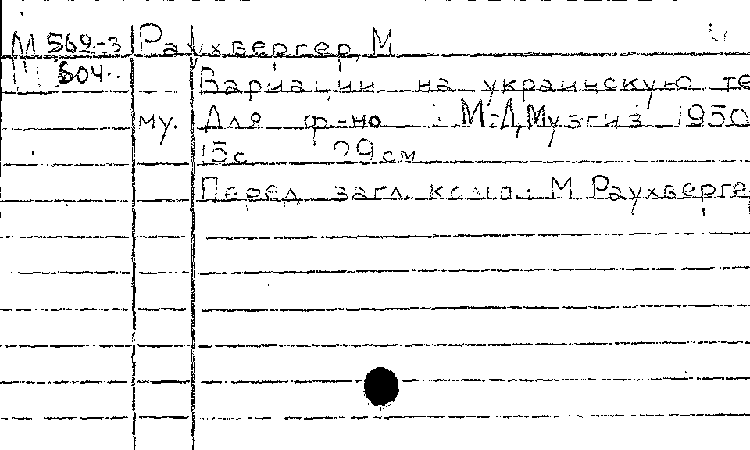 М 569-3 Раухвергер, М
М 604
Вариации на украинскую те
му. Для ф-но М.-Л, Музгиз 1950
15с 29см
Перед загл. комп.: М Раухверге